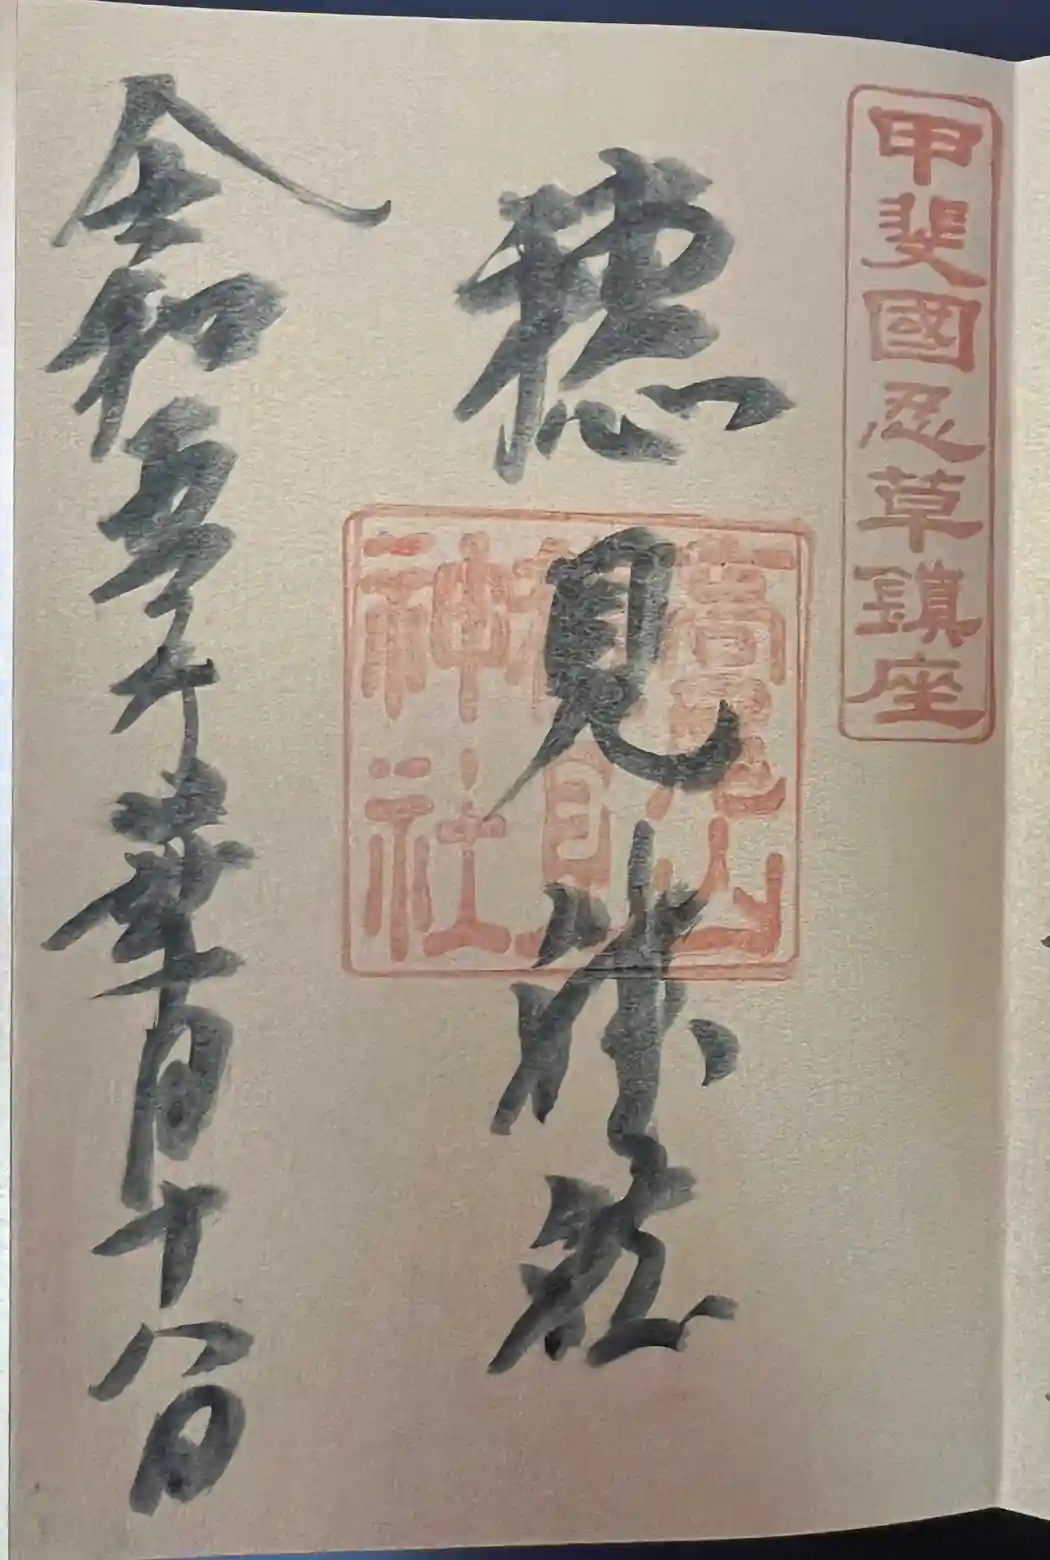 甲斐國忍草鎮座
穂見神社
高尾山
穂見
神社
令和五年葉月十八日